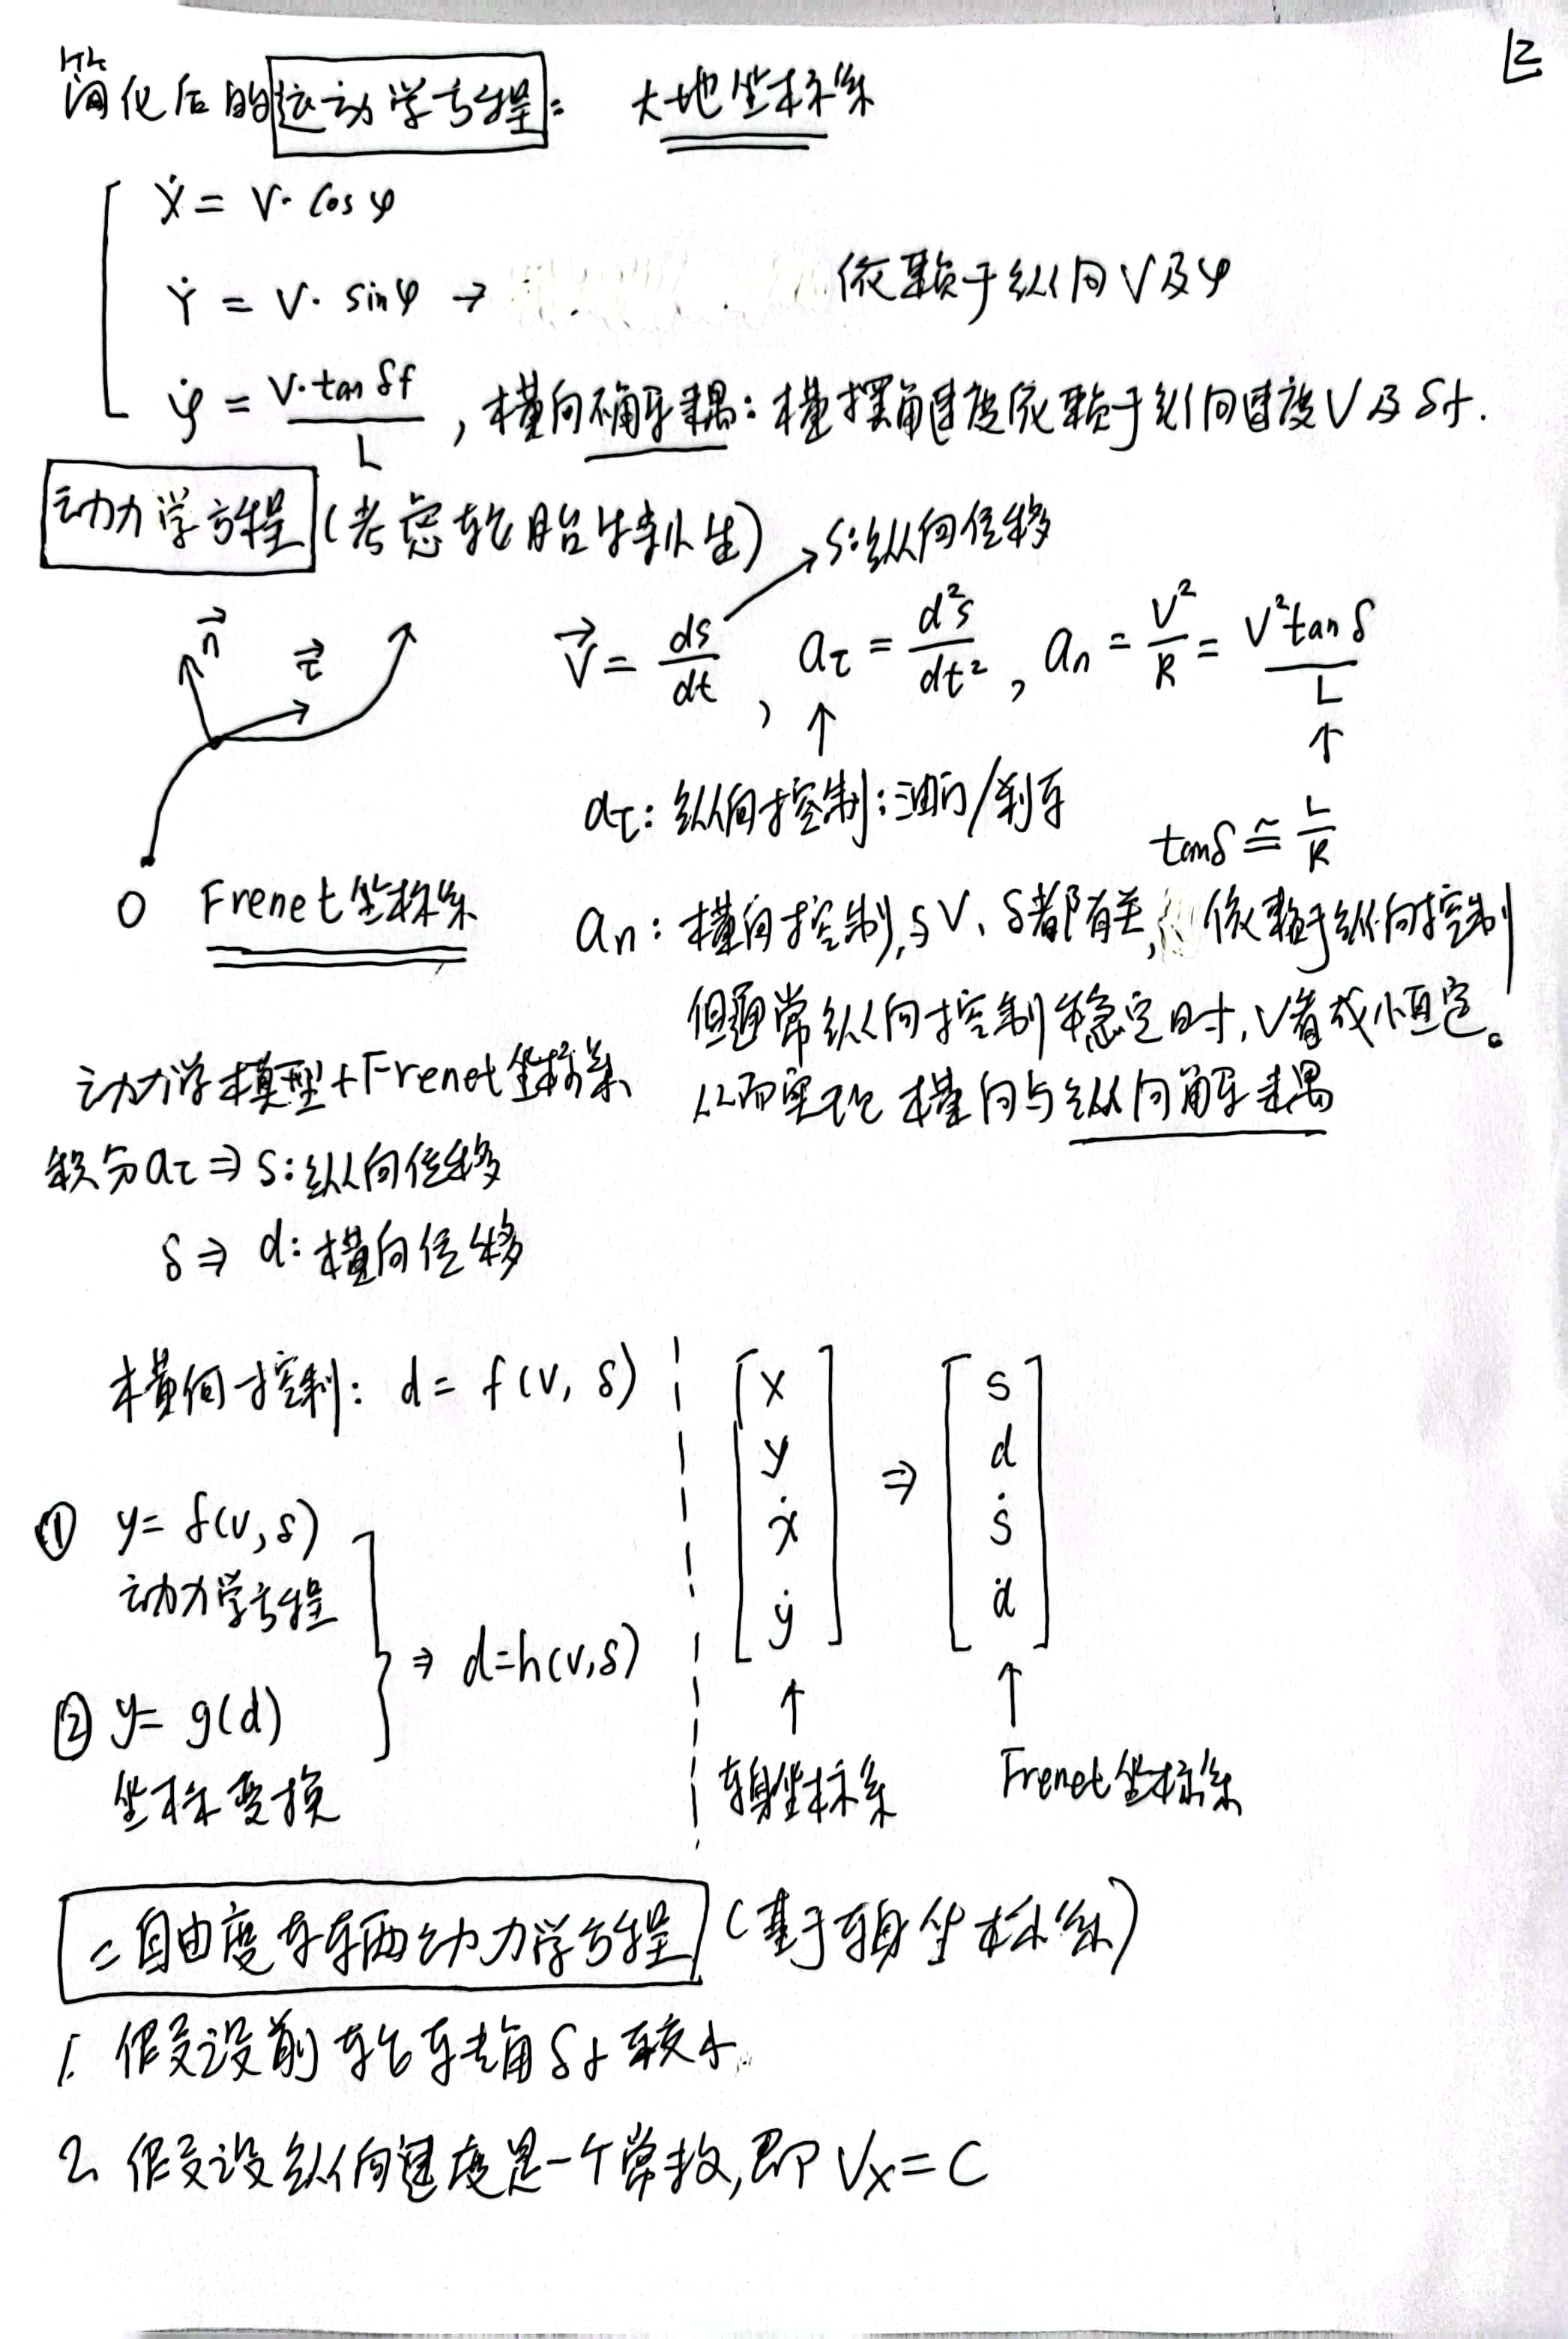 12
简化后的运动学方程: 大地坐标系
Ẋ = V·cosφ
Ẏ = V·sinφ → 依赖于纵向V及φ
φ̇ = V·tanδf / L, 横向不解耦: 横摆角速度依赖于纵向速度V及δf.
动力学方程(考虑轮胎特性)
s:纵向位移
n⃗ τ⃗
V⃗ = ds/dt, aτ = d²s/dt², an = V²/R = V²tanδ/L
aτ: 纵向控制:油门/刹车
tanδ ≅ L/R
O Frenet坐标系
an: 横向控制,与V、δ都有关, 依赖于纵向控制
但通常纵向控制稳定时,V看成恒定。
从而实现横向与纵向解耦
动力学模型+Frenet坐标系
积分aτ ⇒ s:纵向位移
δ ⇒ d:横向位移
横向控制: d = f(v, δ)
① y = f(v, δ)
动力学方程
② y = g(d)
坐标变换
⇒ d=h(v,δ)
[x y ẋ ẏ] ⇒ [s d ṡ ḋ]
↑ ↑
车身坐标系 Frenet坐标系
二自由度车辆动力学方程 (基于车身坐标系)
1. 假设前轮转角δf较小
2. 假设纵向速度是一个常数,即Vx=C